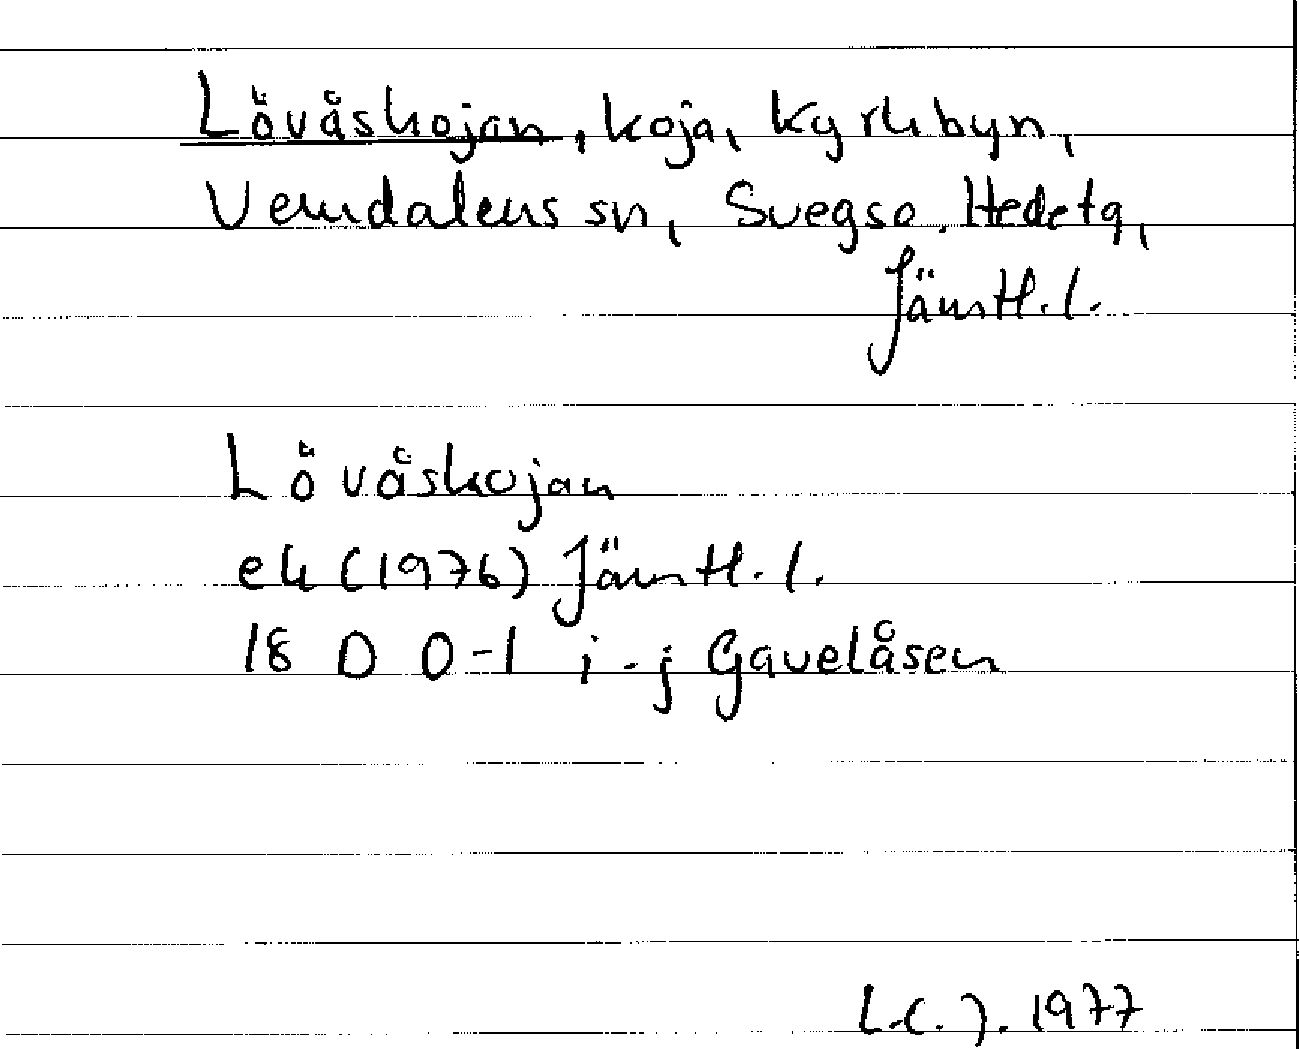 Lövåskojan, koja, Kyrkbyn,
Vemdalens sn, Svegs o. Hedetg,
Jämtl. l.
Lövåskojan
ek (1976) Jämtl. l.
18 D 0-1 i-j Gavelåsen
L.C.J. 1977